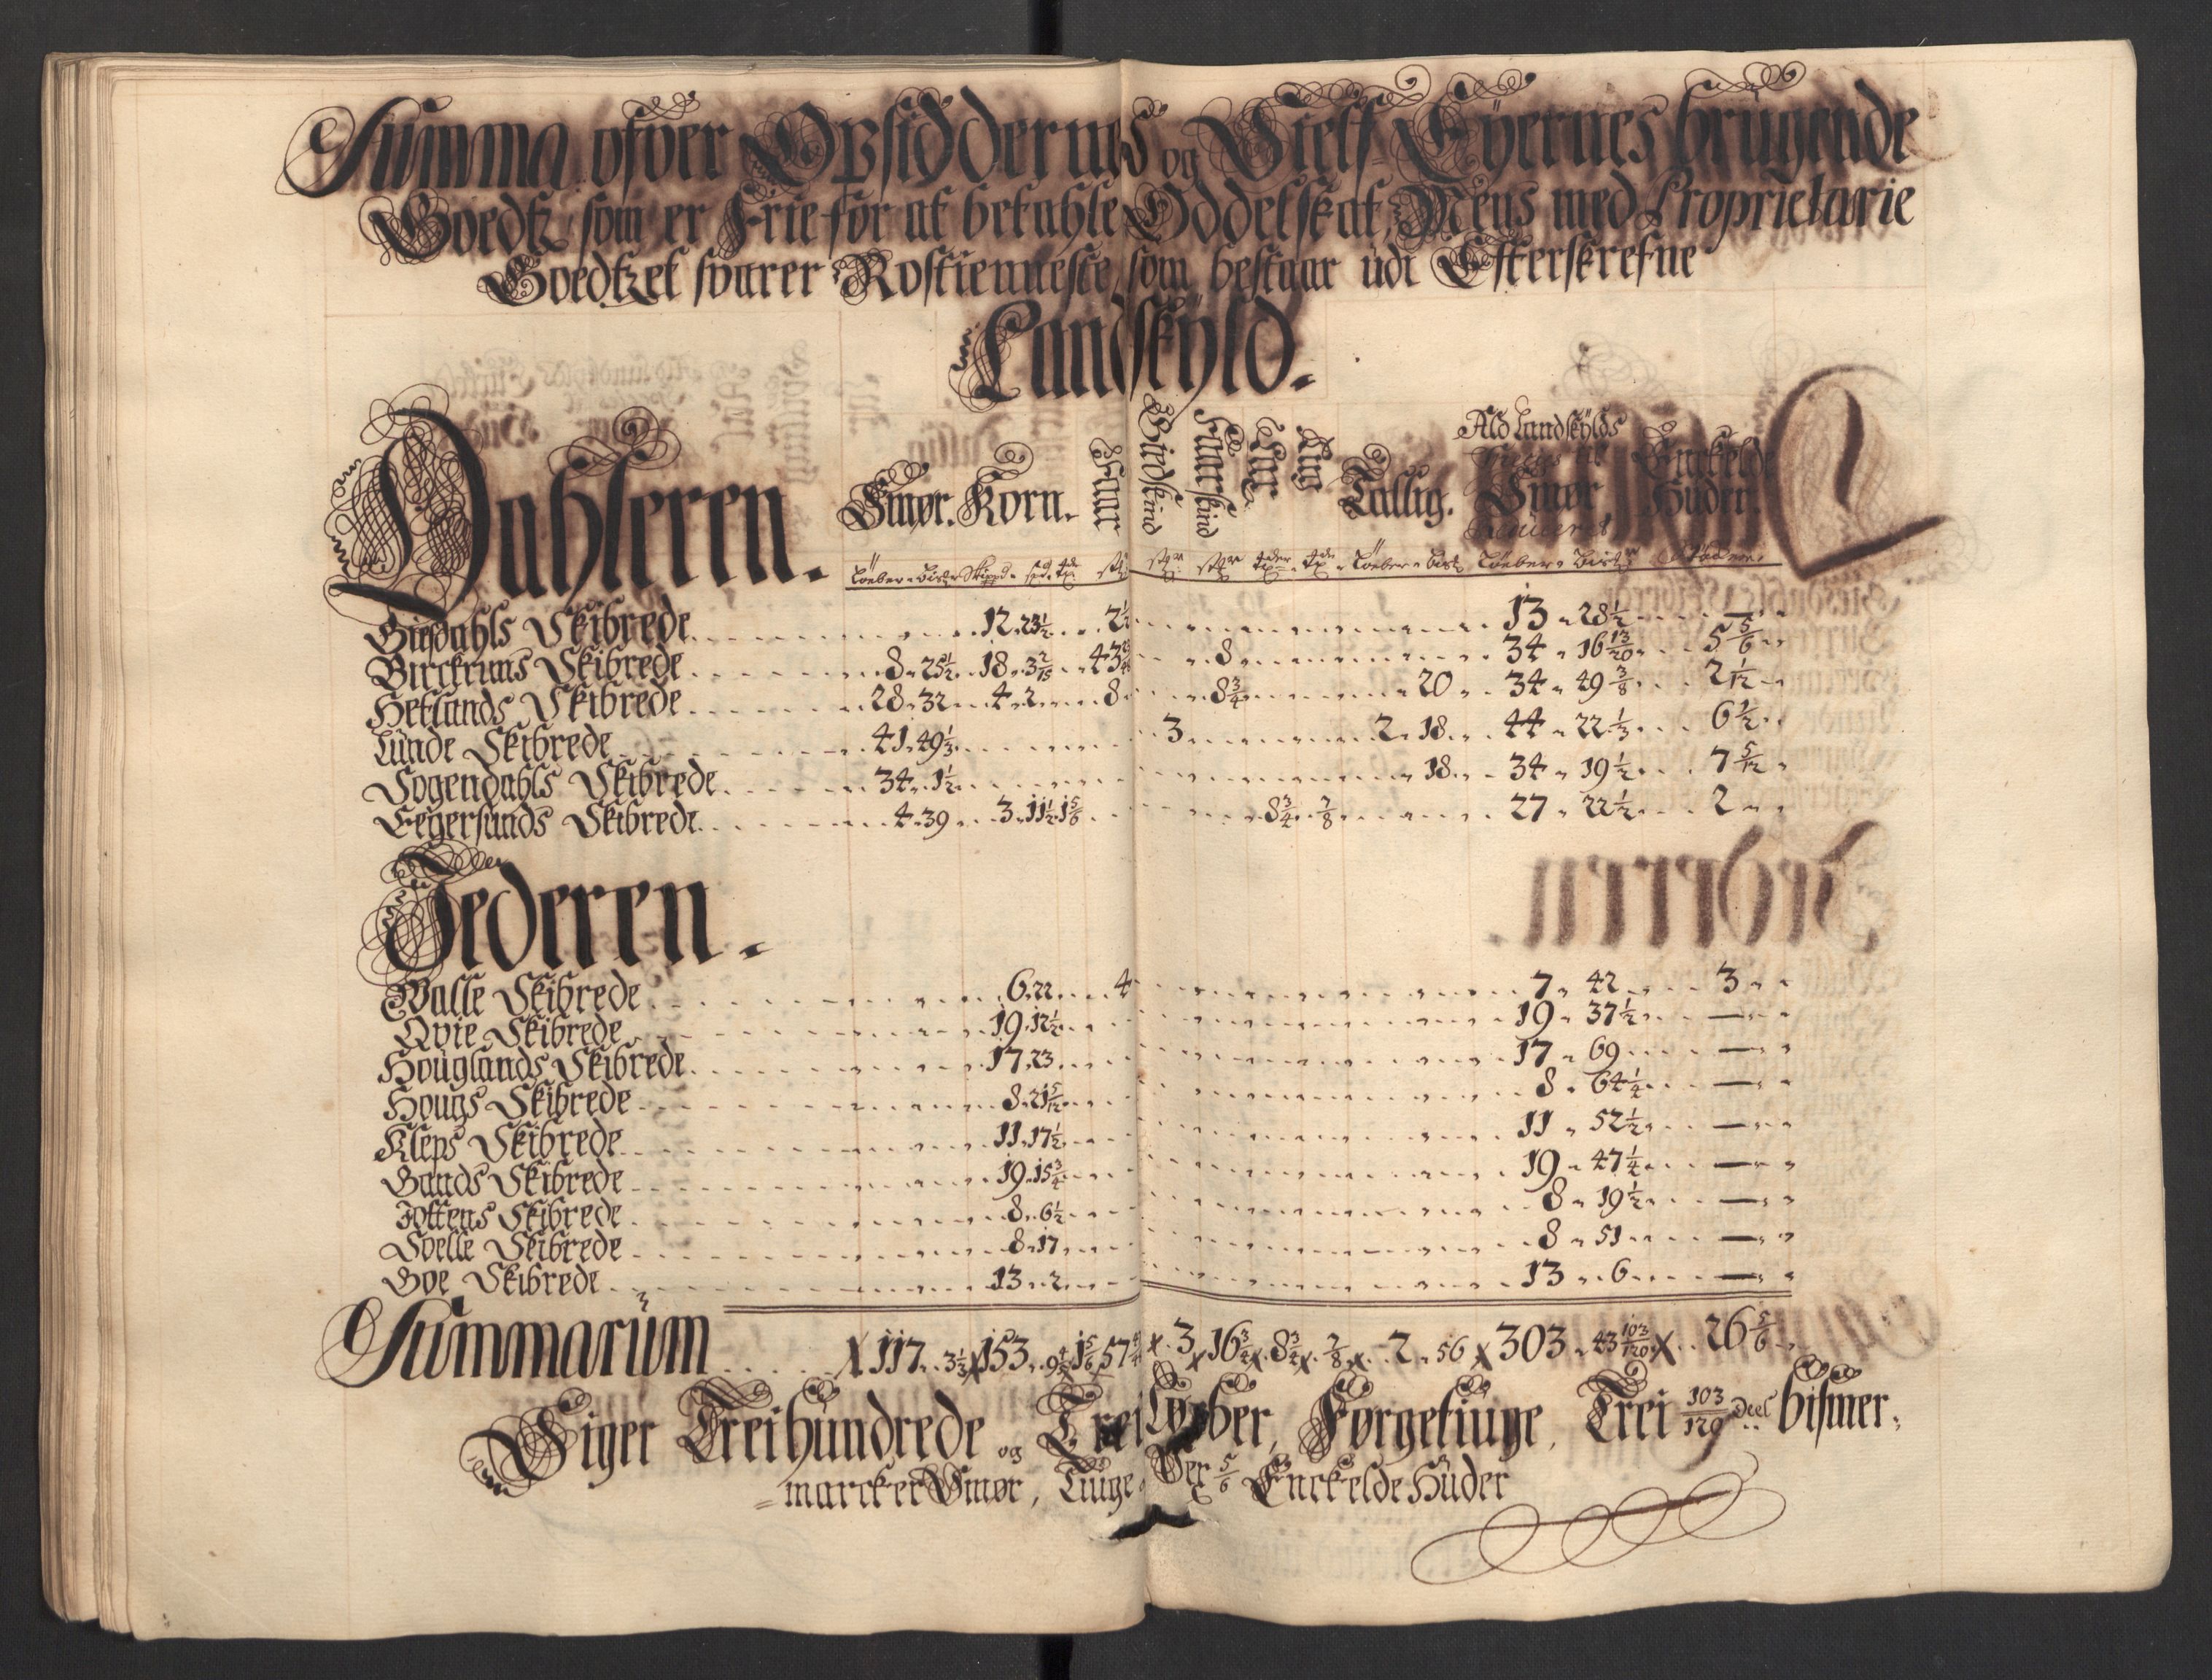 Summa ofver Opsiddernes og Sielf Eÿernes brugende
Goedtz som er Frie for at betahle Oddelskat, Mens med Proprietarie
Goedtzet svarer Rostienneste, som bestaar udi Efterskrefne
Landskÿld.
Dahleren. Smør. Korn. Haar Giedskind Faarskind Tallig. Ald Landskÿlds Smør Enckelde Huder.
Giesdahls Skibrede 12 23½ 2½ 13 28½ —
Birckrims Skibrede 8 25½ 18 3 2/15 43 8 34 16 13/20 5 5/6
Hetlands Skibrede 28 32 4 2 8 8¾ 20 34 49 3/8 2 1/12
Lunde Skibrede 41 49⅓ 3 2 18 44 22⅓ 6½
Sogendahls Skibrede 34 1½ 18 34 19½ 7 5/12
Eegersunds Skibrede 4 39 3 11½ 1 5/6 8¾ 7/8 27 22½ 2
Jederen.
Walle Skibrede 6 22 4 7 42 3
Qvie Skibrede 19 12½ 19 37½ —
Houglands Skibrede 17 23 17 69 —
Hougs Skibrede 8 21 5/12 8 64¼ —
Kleps Skibrede 11 17½ 11 52½ —
Gands Skibrede 19 15¾ 19 47¼ —
Jottens Skibrede 8 6½ 8 19½ —
Soelle Skibrede 8 17 8 51 —
Goe Skibrede 13 2 13 6 —
Summarum X 117 3⅓ X 153 9 4/5 X 1 5/6 X 57 X 3 X 16¾ X 8¾ X 7/8 X 2 56 X 303 43 103/120 X 26 5/6
Siger Treihundrede og Trei Løeber, Førgetiuge, Trei 103/120 Deel bismer
=marcker Smør, Tiuge Sex 5/6 Enckelde Huder